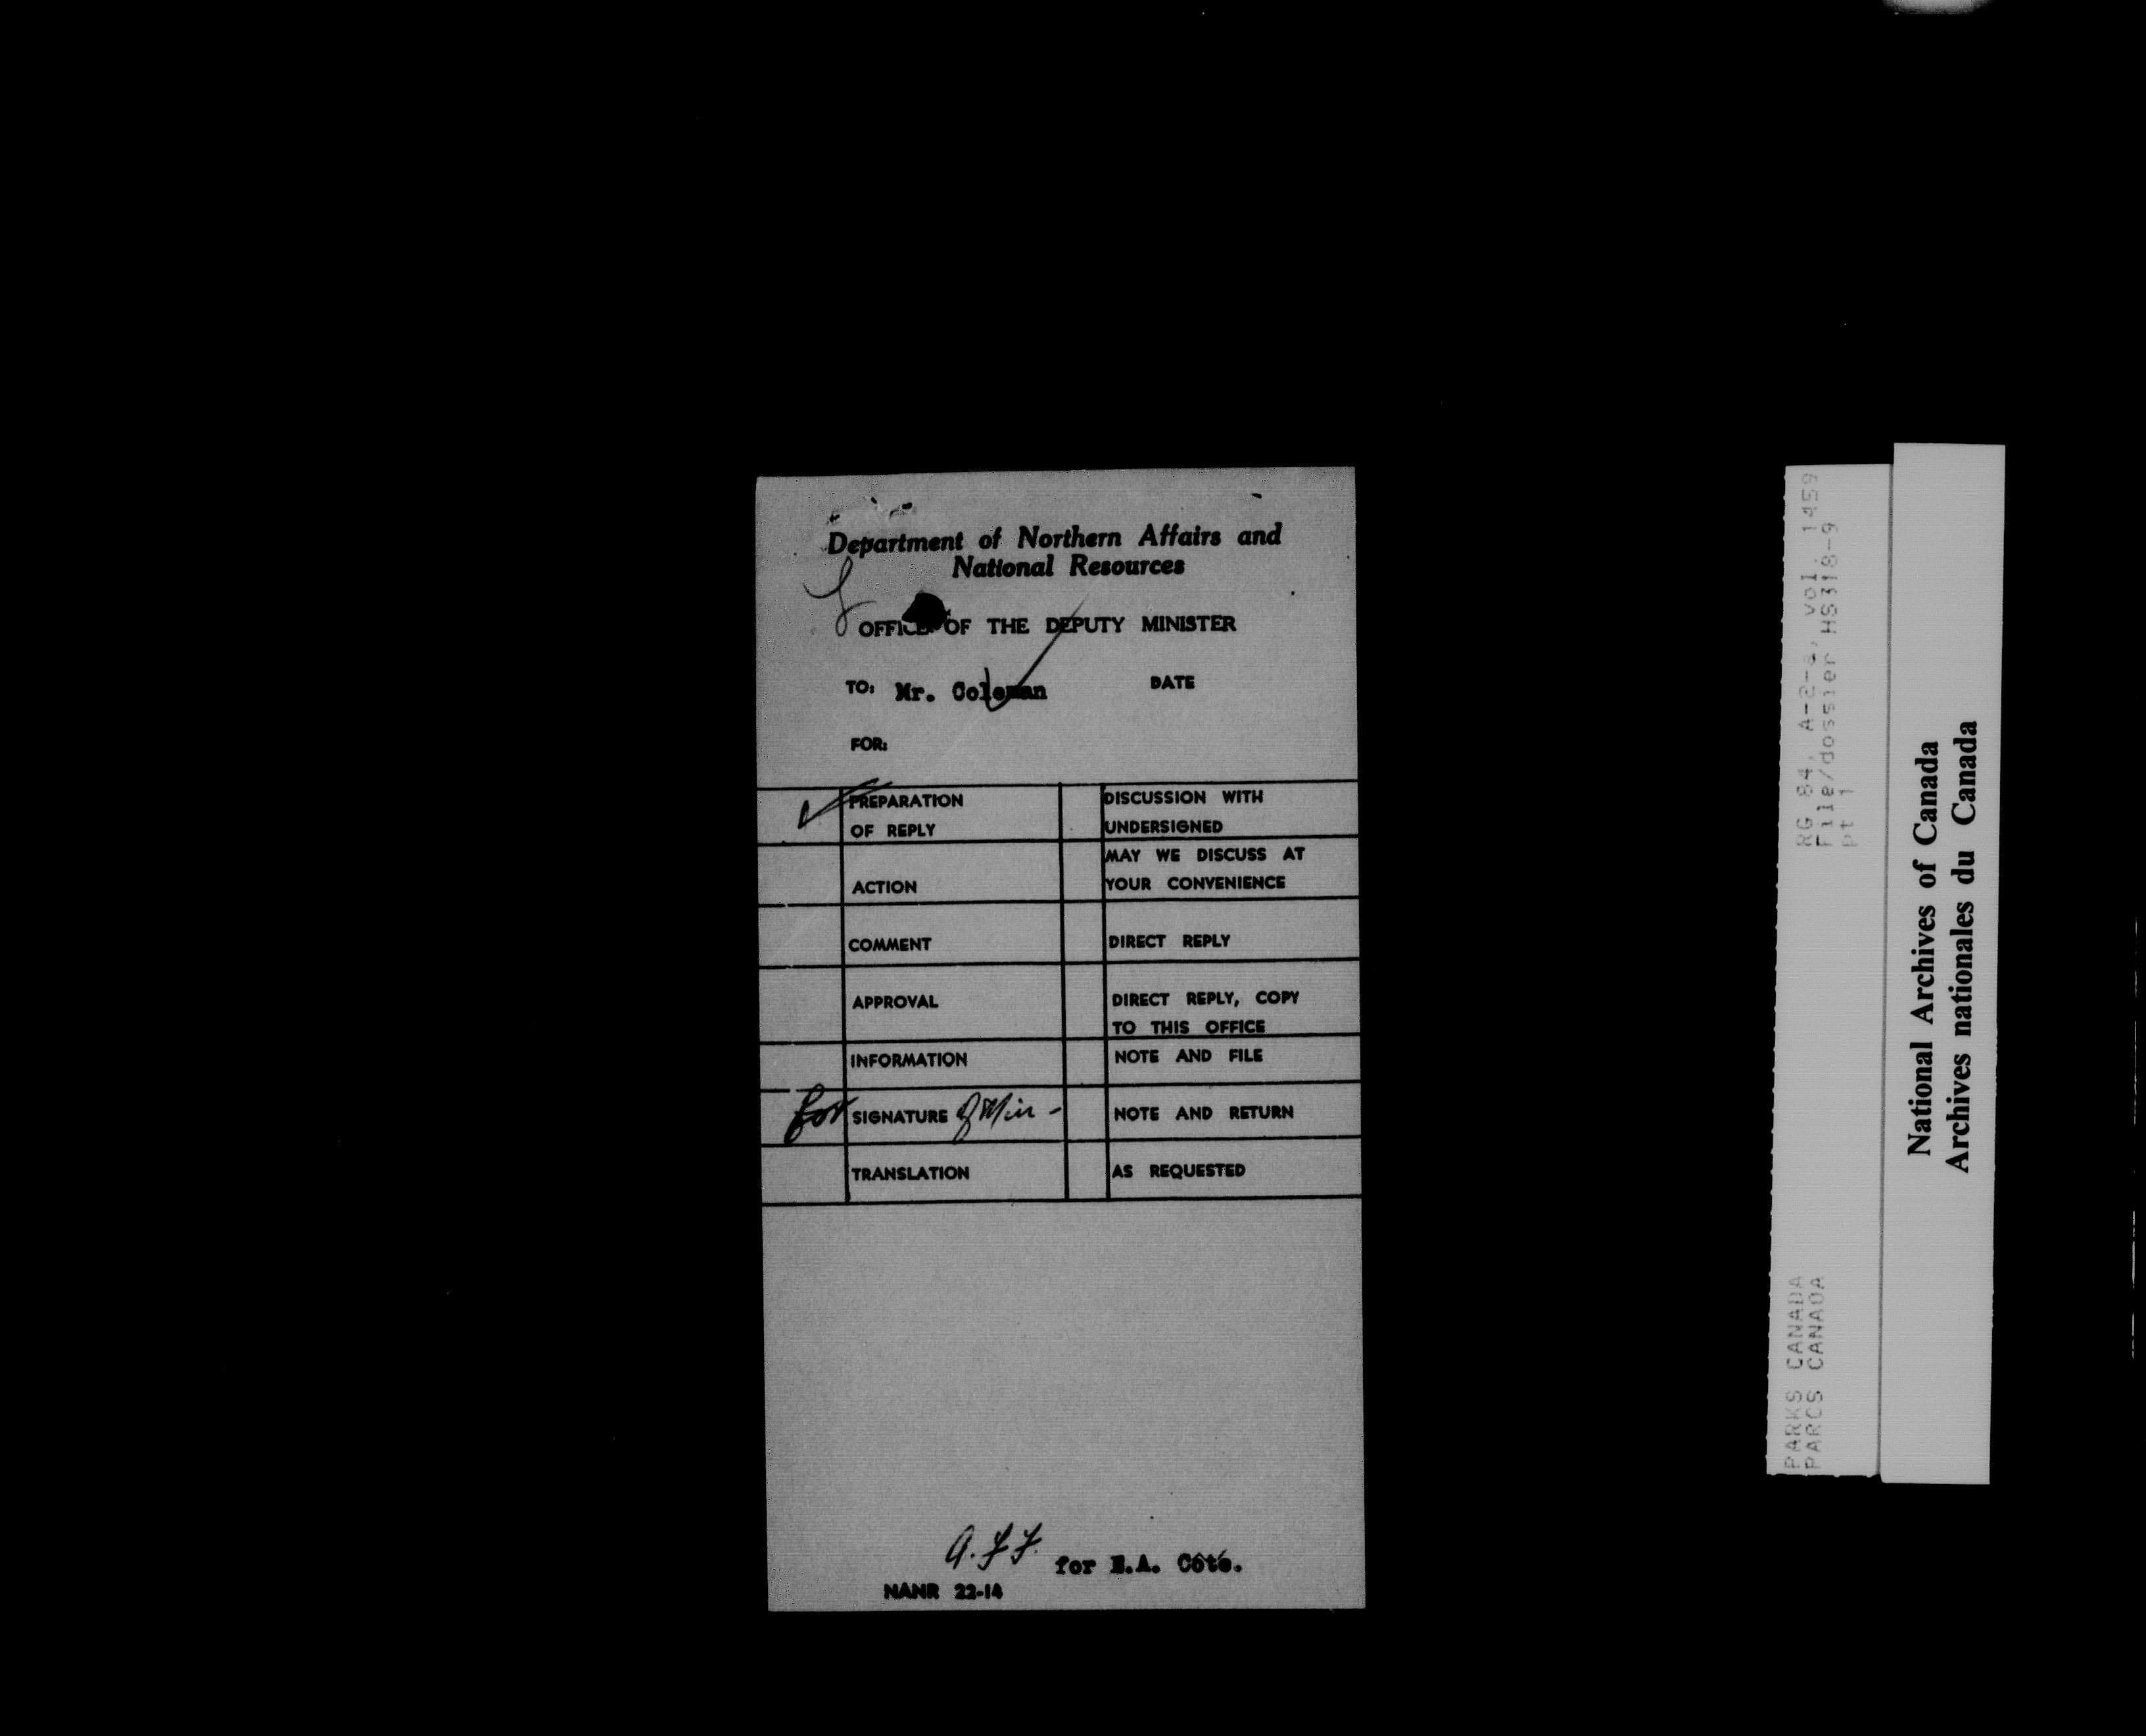 Department of Northern Affairs and
National Resources
OFFICE OF THE DEPUTY MINISTER
TO: Mr. Coleman DATE
FOR:
PREPARATION
OF REPLY
DISCUSSION WITH
UNDERSIGNED
ACTION
MAY WE DISCUSS AT
YOUR CONVENIENCE
COMMENT
DIRECT REPLY
APPROVAL
DIRECT REPLY, COPY
TO THIS OFFICE
INFORMATION
NOTE AND FILE
for SIGNATURE of Min -
NOTE AND RETURN
TRANSLATION
AS REQUESTED
for E.A. Côté.
NANR 22-14
RG 84, A-2-a, vol. 1459
File/dossier HS318-9
pt 1
PARKS CANADA
PARCS CANADA
National Archives of Canada
Archives nationales du Canada